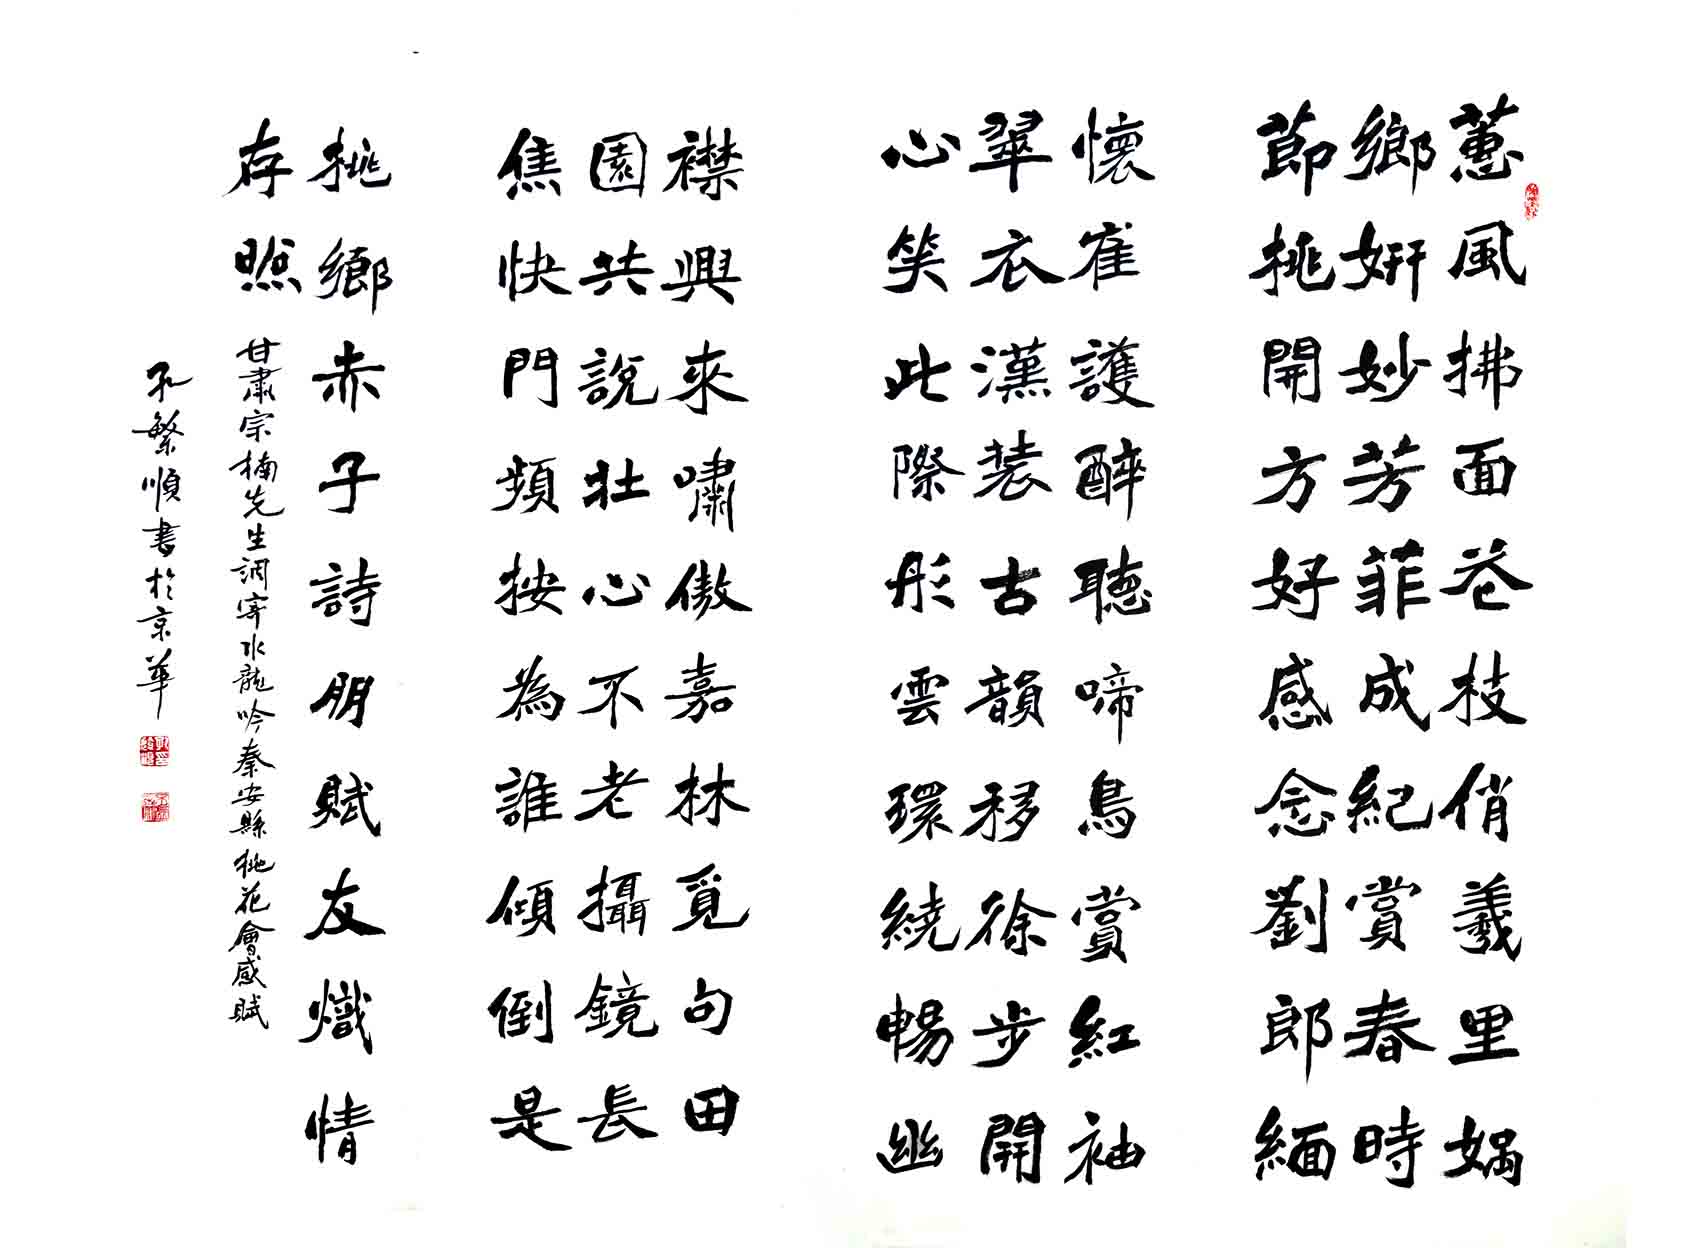 蕙風拂面花枝俏羲里媧
鄉妍妙芳菲成紀賞春時
節挑開方好感念劉郎緬
懷崔護醉聽啼鳥賞紅袖
翠衣漢裝古韻移徐步開
心笑此際彤雲環繞暢幽
襟興來嘯傲嘉林覓句田
園共說壯心不老攝鏡長
焦快門頻按為誰傾倒是
桃鄉赤子詩朋賦友熾情
存照
甘肅宗楠先生詞寄水龍吟秦安縣桃花會感賦
孔繁順書於京華